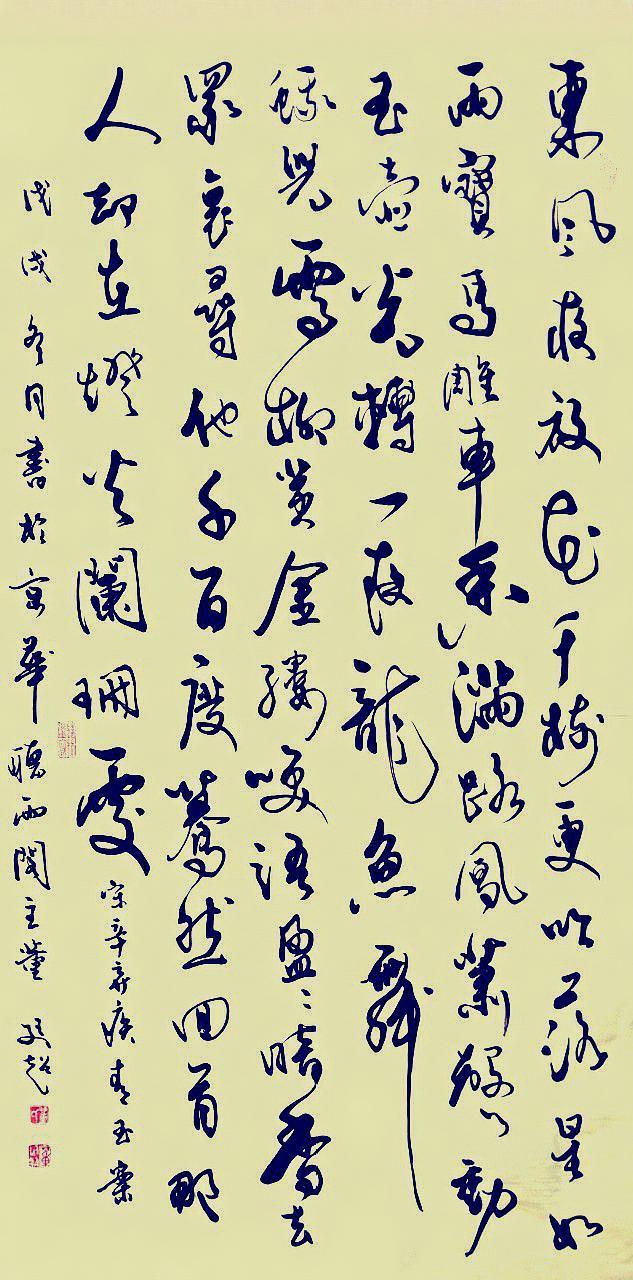 東風夜放花千樹更吹落星如
雨寶馬雕車香滿路鳳簫聲動
玉壺光轉一夜龍魚舞
蛾兒雪柳黃金縷笑語盈〻暗香去
眾裏尋他千百度驀然回首那
人却在燈火闌珊處
宋辛弃疾青玉案
戊戌冬月書於京華聽雨閣主董超